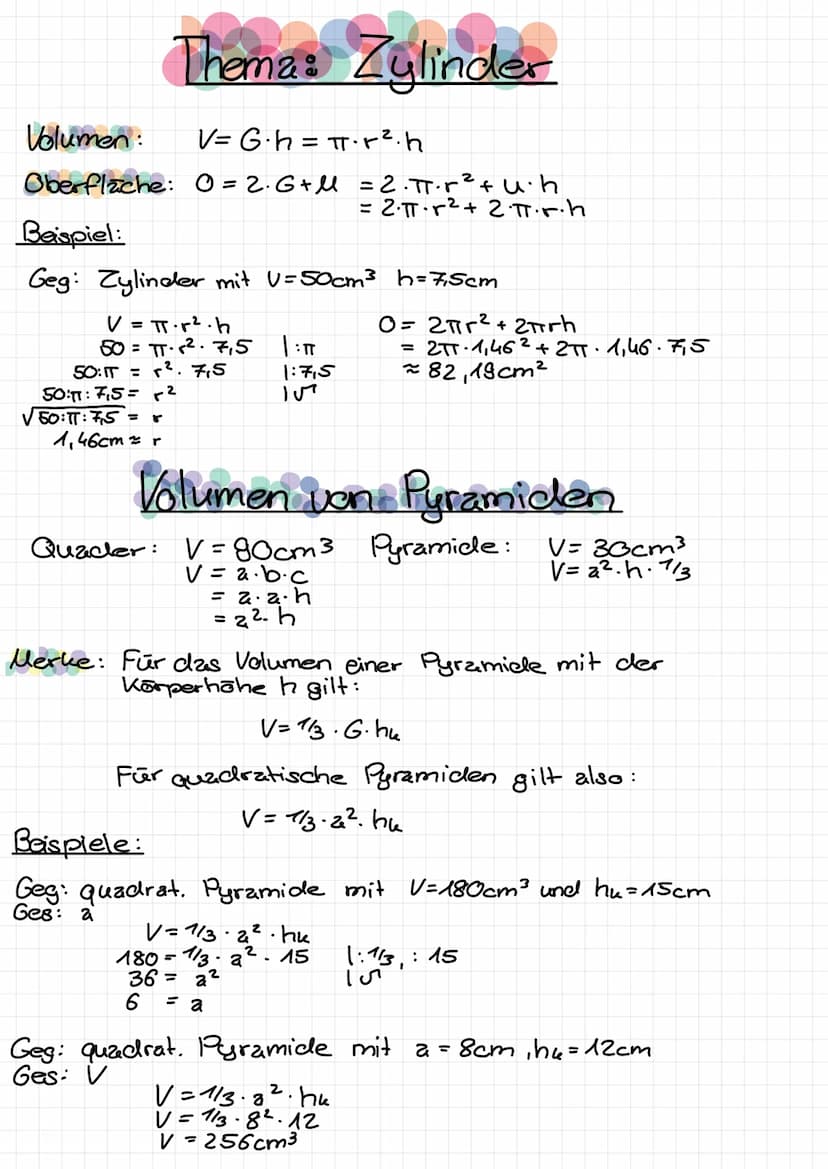 Thema: Zylinder
Volumen: V= G·h = π·r²·h
Oberfläche: O = 2·G+M = 2·π·r²+ u·h
= 2·π·r²+ 2·π·r·h
Beispiel:
Geg: Zylinder mit V=50cm³ h=7,5cm
V = π·r²·h
50 = π·r²·7,5 |:π
50:π = r²·7,5 |:7,5
50:π:7,5= r² |√
√50:π:7,5 = r
1,46cm ≈ r
O= 2πr²+2πrh
= 2π·1,46²+2π·1,46·7,5
≈ 82,19cm²
Volumen von Pyramiden
Quader: V = 80cm³ Pyramide: V= 30cm³
V = a·b·c V= a²·h·1/3
= a·a·h
= a²·h
Merke: Für das Volumen einer Pyramide mit der
Körperhöhe h gilt:
V= 1/3 · G·hk
Für quadratische Pyramiden gilt also:
V= 1/3·a²·hk
Beispiele:
Geg: quadrat. Pyramide mit V=180cm³ und hk=15cm
Ges: a
V= 1/3 · a² · hk
180 = 1/3 · a² · 15 |:1/3, : 15
36 = a² |√
6 = a
Geg: quadrat. Pyramide mit a = 8cm, hk = 12cm
Ges: V
V = 1/3·a²·hk
V = 1/3·8²·12
V = 256cm³